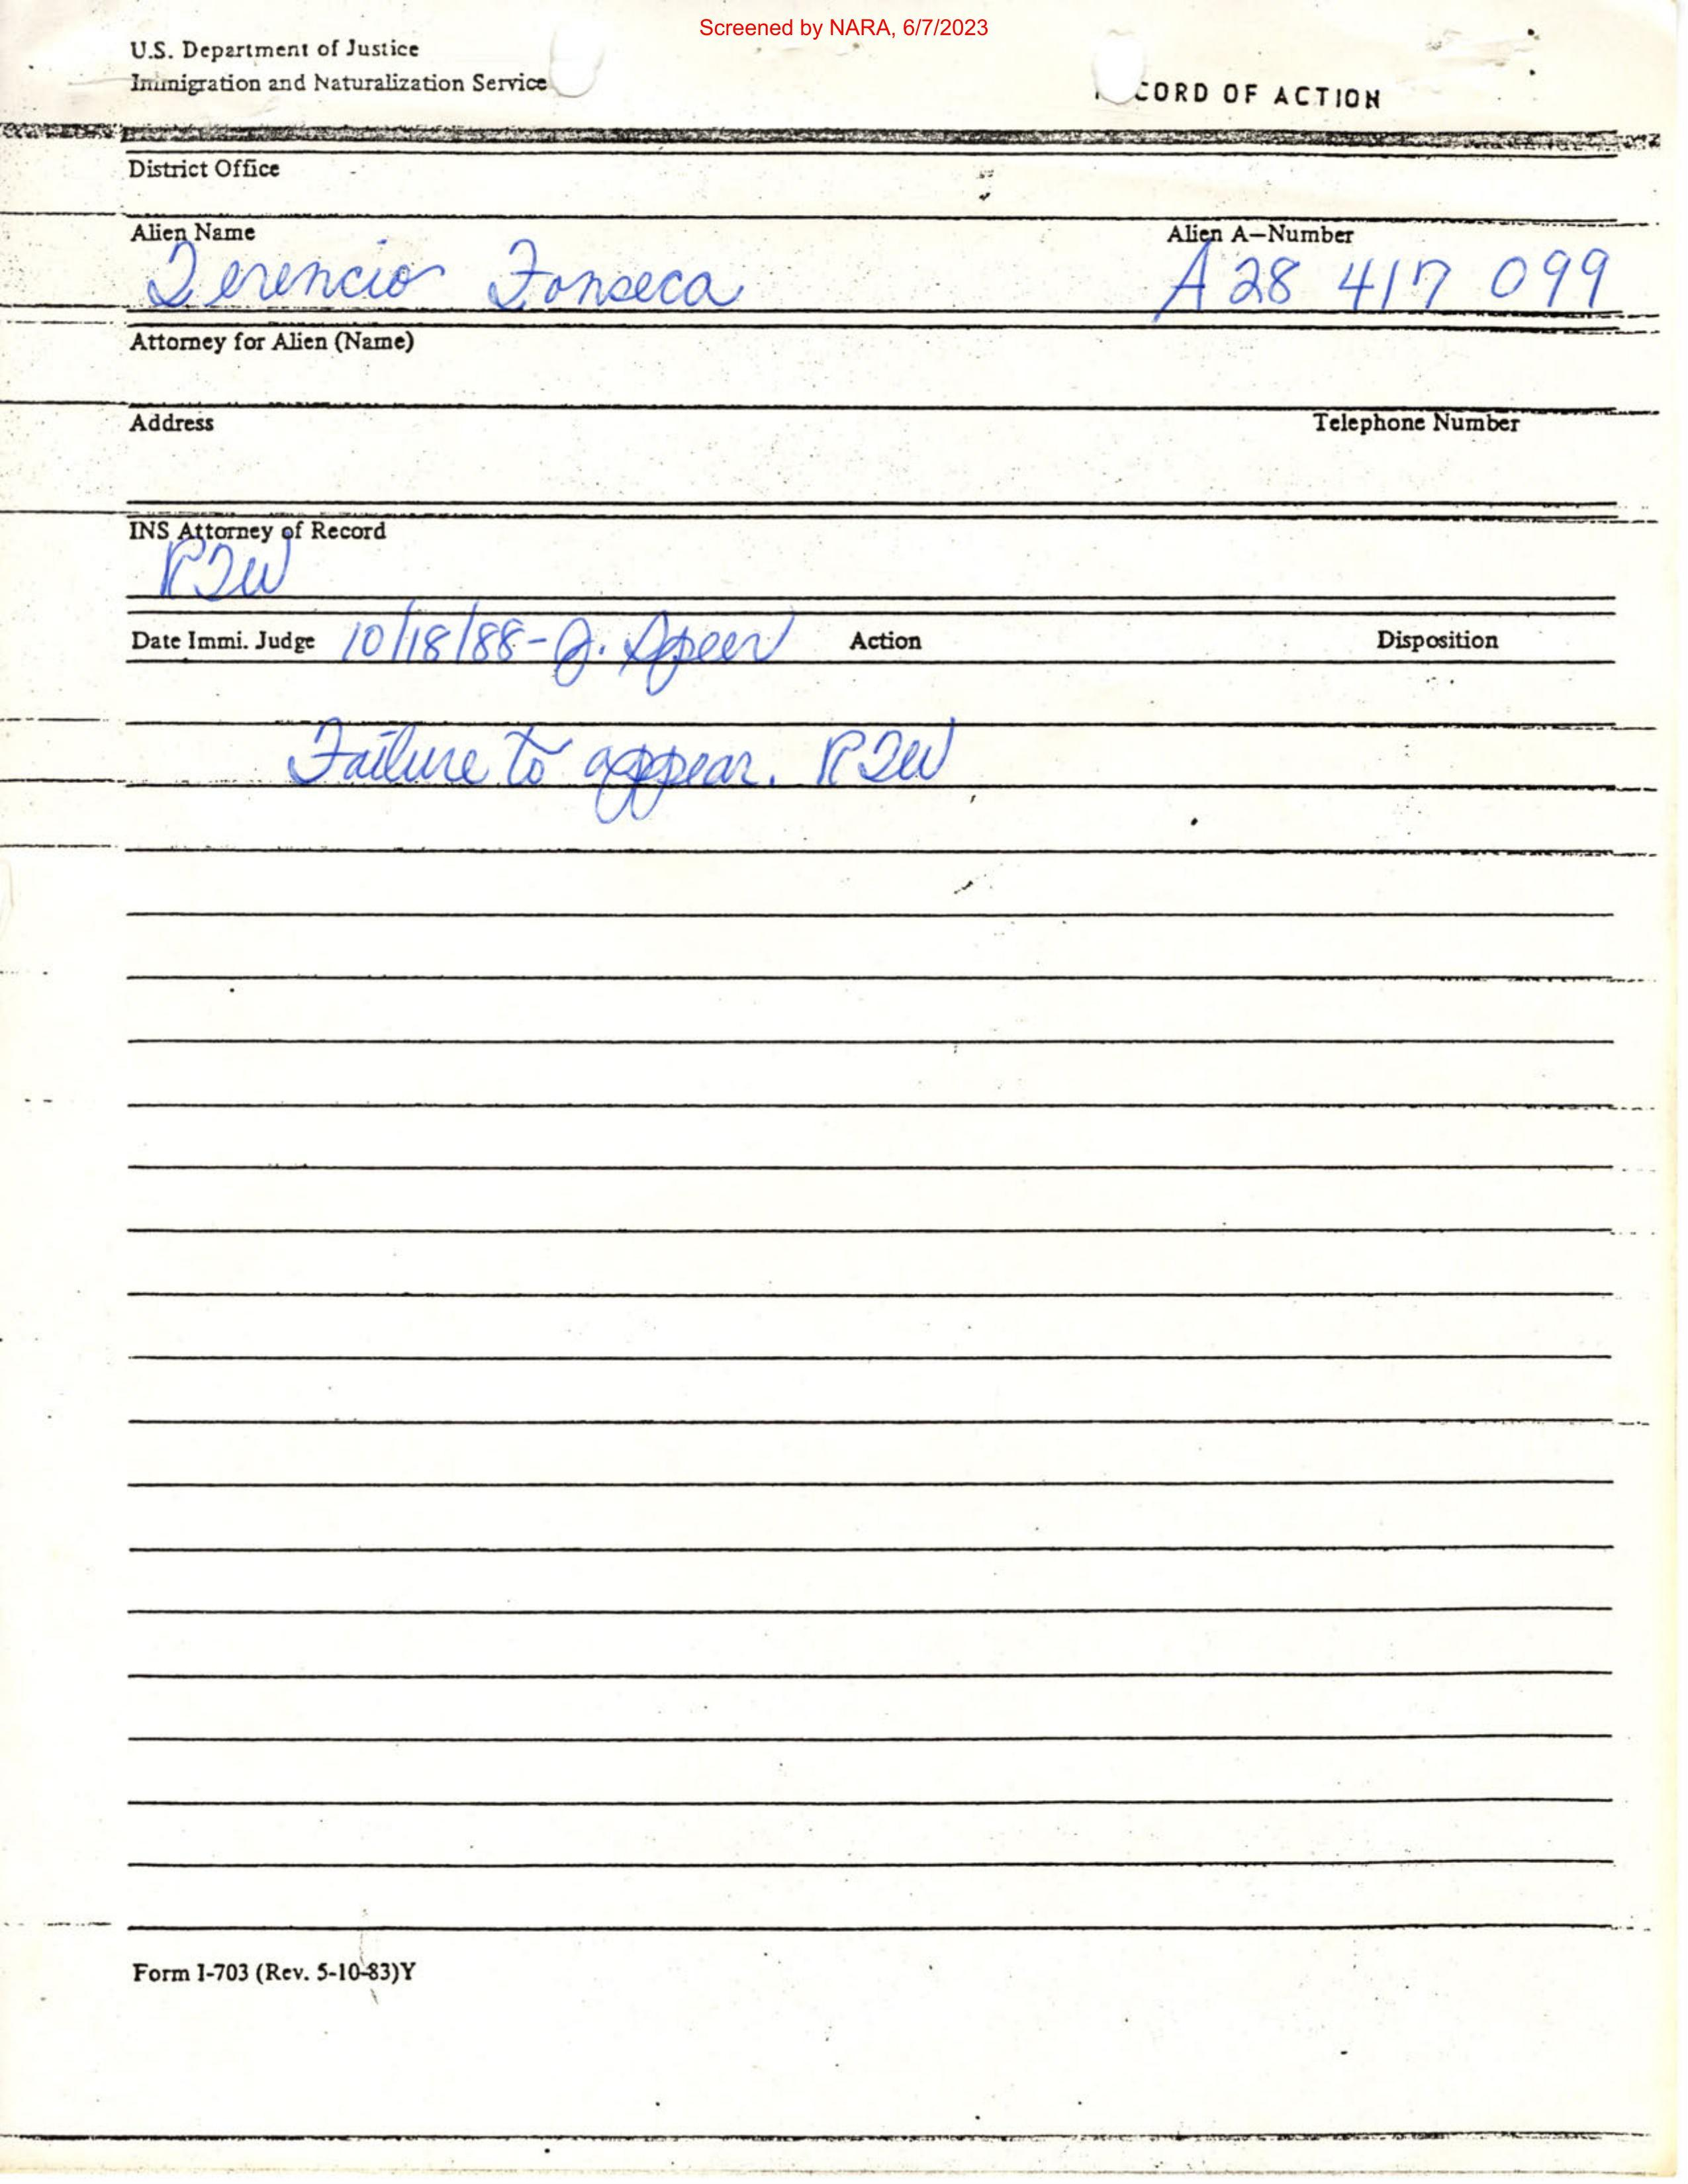 Screened by NARA, 6/7/2023
U.S. Department of Justice
Immigration and Naturalization Service
CORD OF ACTION
District Office
Alien Name Alien A-Number
Terencio Fonseca A28 417 099
Attorney for Alien (Name)
Address Telephone Number
INS Attorney of Record
RJW
Date Immi. Judge 10/18/88- J. Speer Action Disposition
Failure to appear. RJW
Form I-703 (Rev. 5-10-83)Y